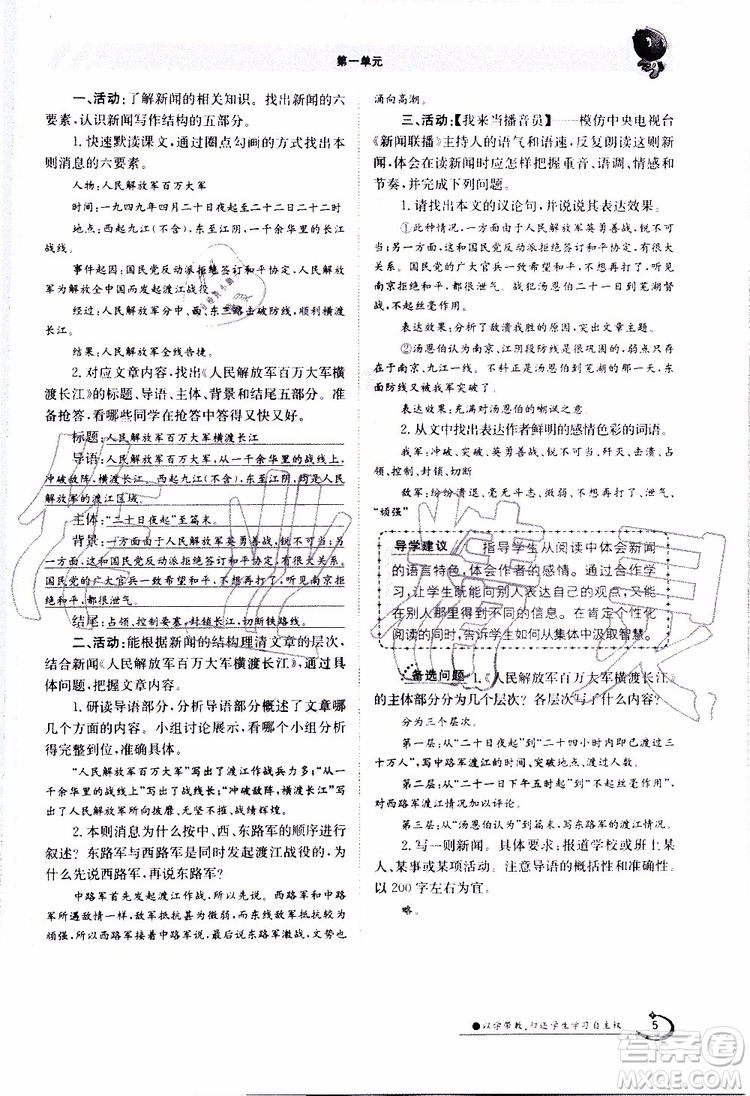 第一单元
一、活动:了解新闻的相关知识。找出新闻的六
要素，认识新闻写作结构的五部分。
1. 快速默读课文，通过圈点勾画的方式找出本
则消息的六要素。
人物:人民解放军百万大军
时间:一九四九年四月二十日夜起至二十二日二十二时
地点:西起九江(不含),东至江阴,一千余华里的长江
战线。
事件起因:国民党反动派拒绝签订和平协定,人民解放军
为解放全中国而发起渡江战役。
经过:人民解放军分中、西、东三路击破防线,顺利横渡
长江。
结果:人民解放军全线告捷。
2. 对应文章内容,找出《人民解放军百万大军横
渡长江》的标题、导语、主体、背景和结尾五部分。准
备抢答,看哪些同学在抢答中答得又快又好。
标题:人民解放军百万大军横渡长江
导语:人民解放军百万大军,从一千余华里的战线上,
冲破敌阵,横渡长江。西起九江(不含),东至江阴,均是人民
解放军的渡江区域。
主体:“二十日夜起”至篇末。
背景:一方面由于人民解放军英勇善战,锐不可当;另一
方面,这和国民党反动派拒绝签订和平协定,有很大关系。
国民党的广大官兵一致希望和平,不想再打了,听见南京拒
绝和平,都很泄气。
结尾:占领、控制要塞,封锁长江,切断铁路线。
二、活动:能根据新闻的结构理清文章的层次,
结合新闻《人民解放军百万大军横渡长江》,以及具
体问题,把握文章内容。
1. 研读导语部分,分析导语部分概括了文章哪
几个方面的内容。小组讨论展示,看哪个小组分析
得全面,准确具体。
“人民解放军百万大军”写出了渡江作战兵力多;“从一
千余华里的战线上”写出了渡江规模大;“冲破敌阵,横渡长
江”写出人民解放军所向披靡、无坚不摧、战绩辉煌。
2. 本则消息为什么按中、西、东路军的顺序进行
叙述?东路军与西路军是同时发起渡江战役的,为
什么先说西路军,再说东路军?
中路军首先发起渡江作战,所以先说。西路军和中路
军所遇敌情一样,敌军抵抗甚为微弱;而东线敌军抵抗较为
顽强,所以中、西路军一起说。最后写东路军激战,文势也
涌向高潮。
三、活动:【我来当播音员】——模仿中央电视台
《新闻联播》主持人的语气和语速,反复朗读这则新
闻,体会在读新闻时应怎样把握重音、语调、情感和
节奏,并完成下列问题。
1. 请找出本文的议论句,并说说其表达效果。
①此种情况,一方面由于人民解放军英勇善战,锐不可
当;另一方面,这和国民党反动派拒绝签订和平协定,有很大
关系。国民党的广大官兵一致希望和平,不想再打了,听见
南京拒绝和平,都很泄气。战犯汤恩伯二十一日到芜湖督
战,不起丝毫作用。
表达效果:分析了敌溃我胜的原因,突出文章主题。
②汤恩伯认为南京、江阴段防线是很巩固的,弱点只存
在于南京、九江一线。不料正是汤恩伯到芜湖的那一天,东
面防线又被我军突破了。
表达效果:充满对汤恩伯的嘲讽之意。
2. 从文中找出表达作者鲜明的感情色彩的词语。
我军:冲破、突破、英勇善战、锐不可当、歼灭、击溃、占
领、控制、封锁、切断
敌军:纷纷溃退、毫无斗志、微弱、不想再打、泄气、
“顽强”
导学建议
指导学生从阅读中体会新闻
的语言特色,体会作者的感情。通过合作学
习,让学生既能向别人表达自己的观点,又能
在别人那得到不同的信息。在肯定个性化
阅读的同时,告诉学生如何从集体中汲取智慧。
备选问题 1.《人民解放军百万大军横渡长江》
的主体部分分为几个层次?各层次写了什么内容?
分为三个层次。
第一层:从“二十日夜起”到“二十四小时内即已渡过三
十万人”,写中路军渡江时间、突破地区和渡江情况。
第二层:从“二十一日下午五时起”到“不起丝毫作用”,
写西路军渡江情况并加以评论。
第三层:从“汤恩伯认为”到篇末,写东路军的渡江情况。
2. 写一则新闻。具体要求:报道学校或班上某
人、某事或某项活动。注意导语的概括性和准确性。
以200字左右为宜。
略。
●以学带教,归还学生学习自主权
5
作业
答案圈
MXQE.COM